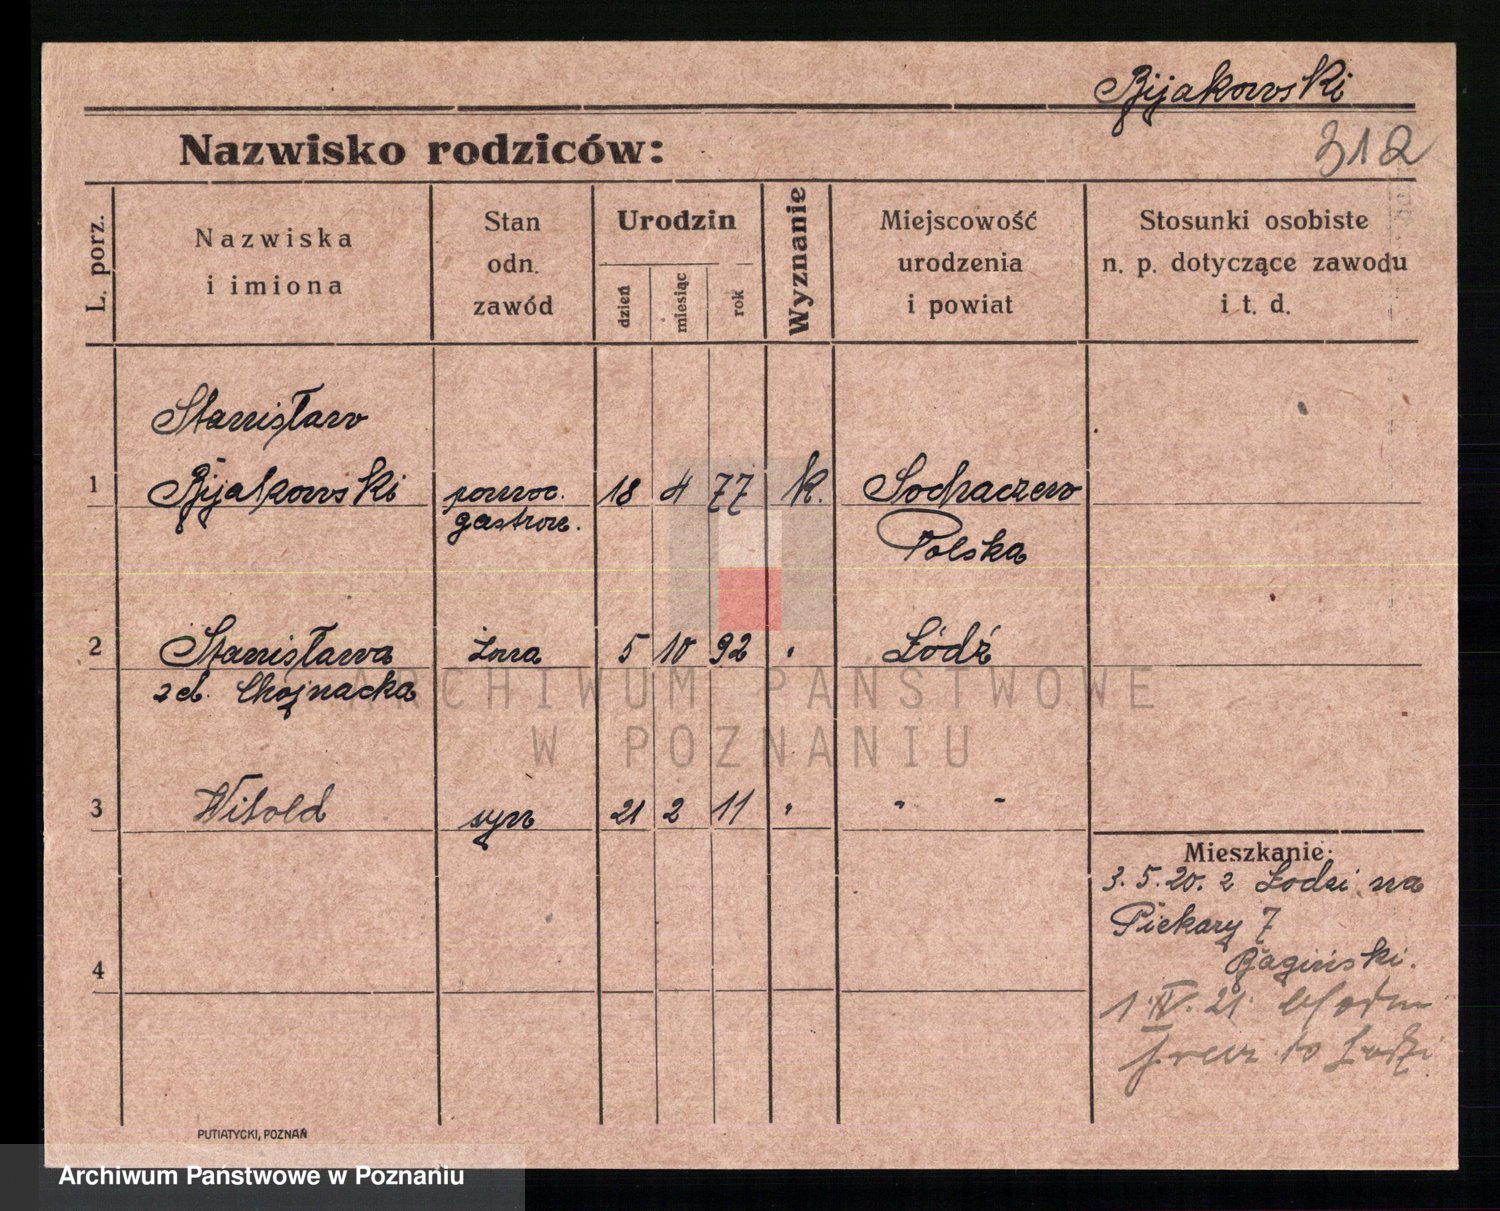 Bijakowski
312
Nazwisko rodziców:
L. porz.
Nazwiska
i imiona
Stan
odn.
zawód
Urodzin
dzień
miesiąc
rok
Wyznanie
Miejscowość
urodzenia
i powiat
Stosunki osobiste
n. p. dotyczące zawodu
i t. d.
Stanisław
1 Bijakowski pomoc. 18 4 77 k. Sochaczew
gastron. Polska
2 Stanisława żona 5 10 92 " Łódź
z d. Chojnacka
ARCHIWUM PAŃSTWOWE
W POZNANIU
3 Witold syn 21 2 11 " " "
Mieszkanie:
3. 5. 20. z Łodzi na
Piekary 7
Bagiński.
4
1 IV. 21.
do Łodzi
PUTIATYCKI, POZNAŃ
Archiwum Państwowe w Poznaniu